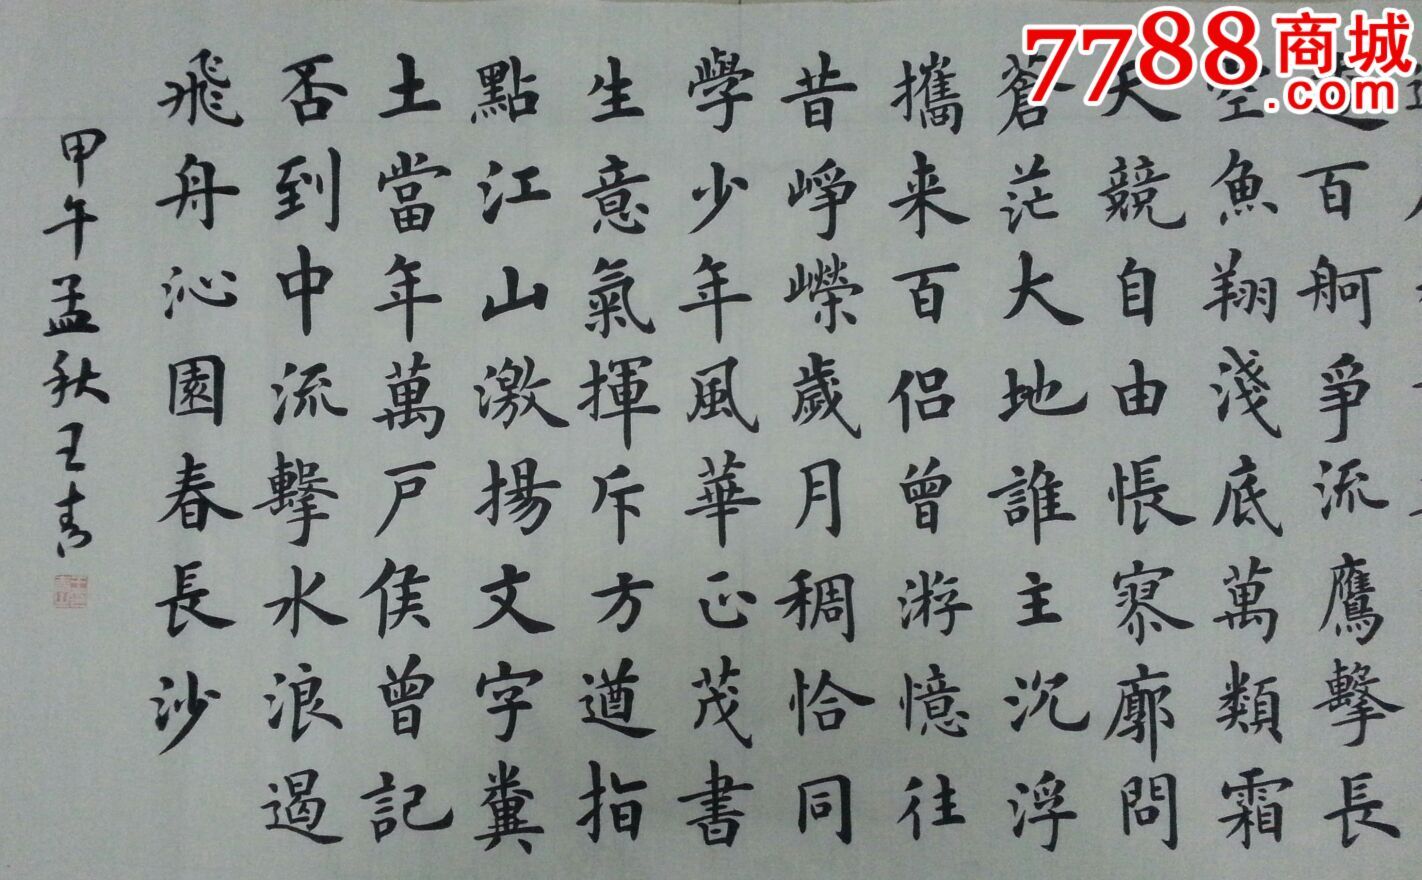 7788商城
.com
百舸爭流鷹擊長
空魚翔淺底萬類霜
天競自由悵寥廓問
蒼茫大地誰主沉浮
攜来百侣曾游憶往
昔崢嶸歲月稠恰同
學少年風華正茂書
生意氣揮斥方遒指
點江山激揚文字糞
土當年萬戶侯曾記
否到中流擊水浪遏
飛舟沁園春長沙
甲午孟秋王青